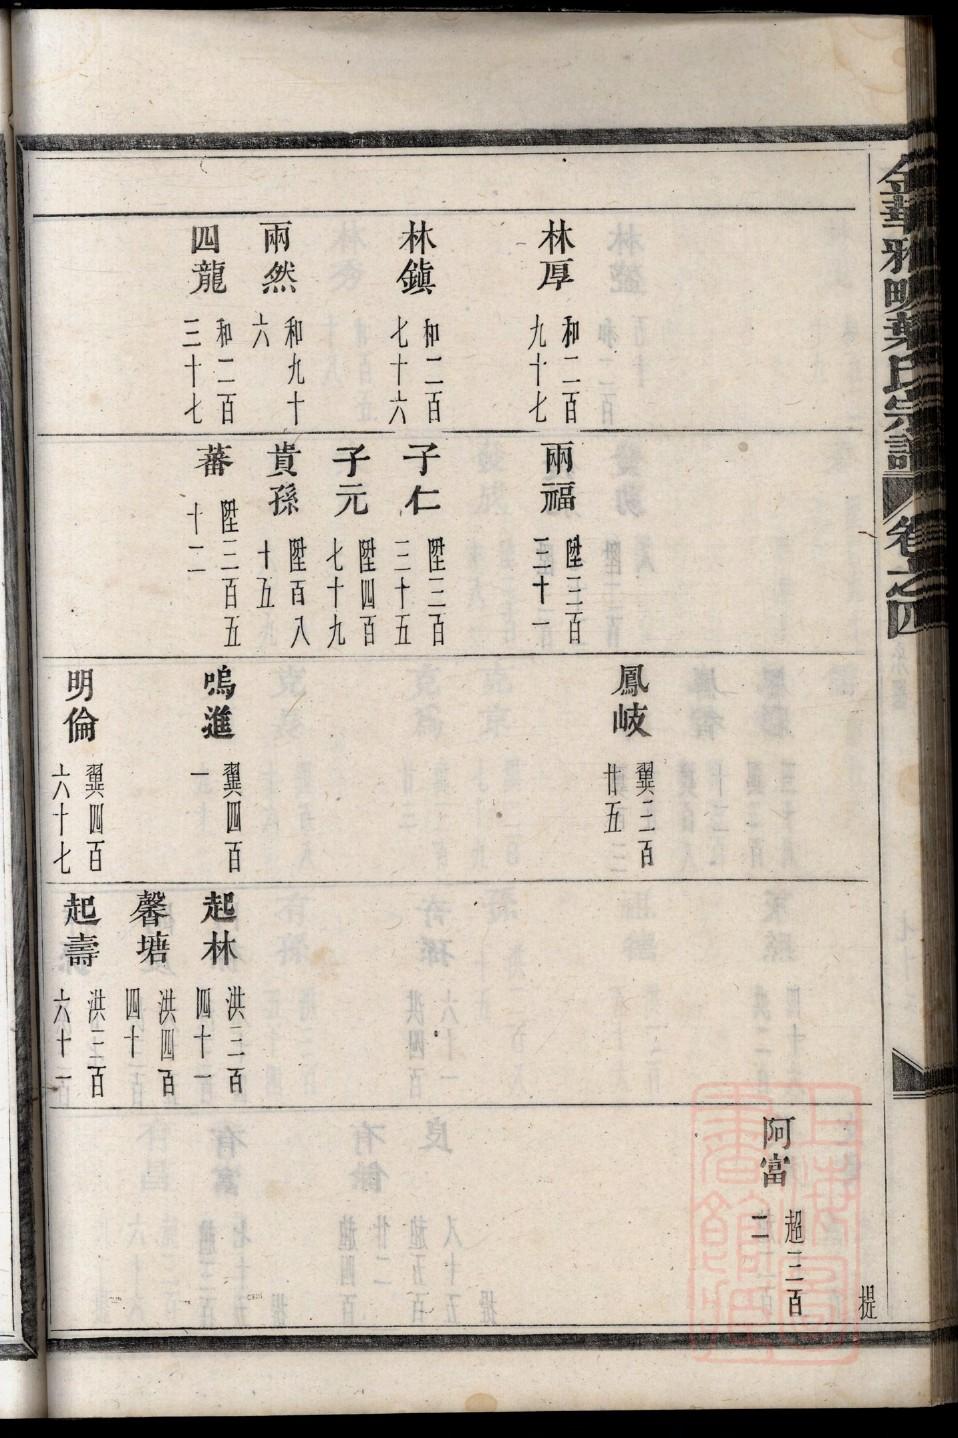 金華雅畈葉氏宗譜
卷之四
林厚
和二百
九十七
林鎮
和二百
七十六
兩然
和九十
六
四龍
和二百
三十七
兩福
陞三百
三十一
子仁
陞三百
三十五
子元
陞四百
七十九
貴孫
陞百八
十五
蕃
陞三百五
十二
鳳岐
翼三百
廿五
鳴進
翼四百
一
明倫
翼四百
六十七
起林
洪三百
四十一
馨塘
洪四百
四十
起壽
洪三百
六十一
提
阿富
超三百
二